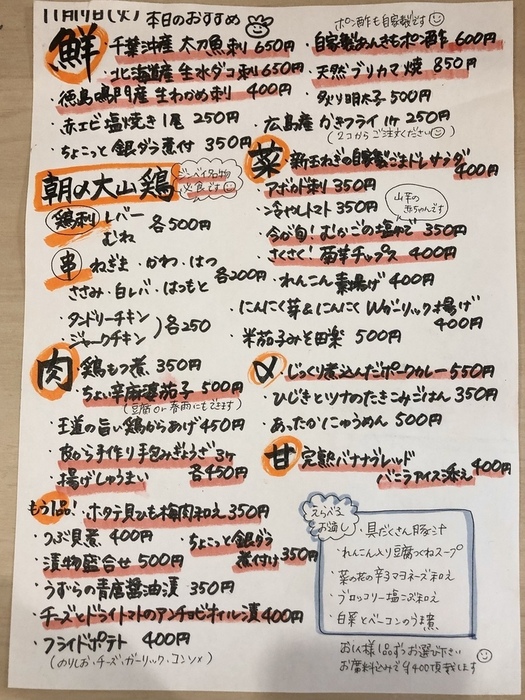 11月19日(火) 本日のおすすめ
鮮
千葉沖産 太刀魚刺 650円
北海道産 生水ダコ刺 650円
徳島鳴門産 生わかめ刺 400円
赤エビ塩焼き1尾 250円
ちょこっと銀ダラ煮付 350円
ポン酢も自家製です
自家製あんきもポン酢 600円
天然ブリカマ焼 850円
炙り明太子 500円
広島産 かきフライ1ケ 250円
(2コからご注文ください)
朝〆大山鶏
ジンベイ名物
必食です
鶏刺 レバー
むね
各500円
串 ねぎま・かわ・はつ
ささみ・白レバ・はつもと
各200円
・タンドリーチキン
・ジャークチキン
)各250
菜
・新玉ねぎの自家製ごまドレサラダ
400円
・アボカド刺 350円
・冷やしトマト 350円
山芋の
赤ちゃんです
・今が旬!むかごの塩ゆで 350円
・さくさく!菊芋チップス 400円
・れんこん素揚げ 400円
・にんにく芽&にんにくWガーリック揚げ
400円
・米茄子みそ田楽 500円
肉
・鶏もつ煮 350円
・ちょい辛麻婆茄子 500円
(豆腐or春雨にもできます)
・王道の旨い鶏からあげ 450円
・皮から手作り手包みぎょうざ3ケ
・揚げしゅうまい
各450円
〆
・じっくり煮込んだポークカレー 550円
・ひじきとツナのたきこみごはん 350円
・あったかにゅうめん 500円
甘
完熟バナナブレッド
バニラアイス添え
400円
もう1品!
・ホタテ貝ひも梅肉和え 350円
・つぶ貝煮 400円
・ちょこっと銀ダラ
煮付け 350円
・漬物盛合せ 500円
・うずらの青唐醤油漬 350円
・チーズとドライトマトのアンチョビオイル漬 400円
・フライドポテト 400円
(のりしお・チーズ・ガーリック・コンソメ)
えらべる
お通し
・具だくさん豚汁
・れんこん入り豆腐つくねスープ
・菜の花の辛子マヨネーズ和え
・ブロッコリー塩こぶ和え
・白菜とベーコンのうま煮
お1人様1品ずつお選び下さい
お席料込みで¥400頂戴します